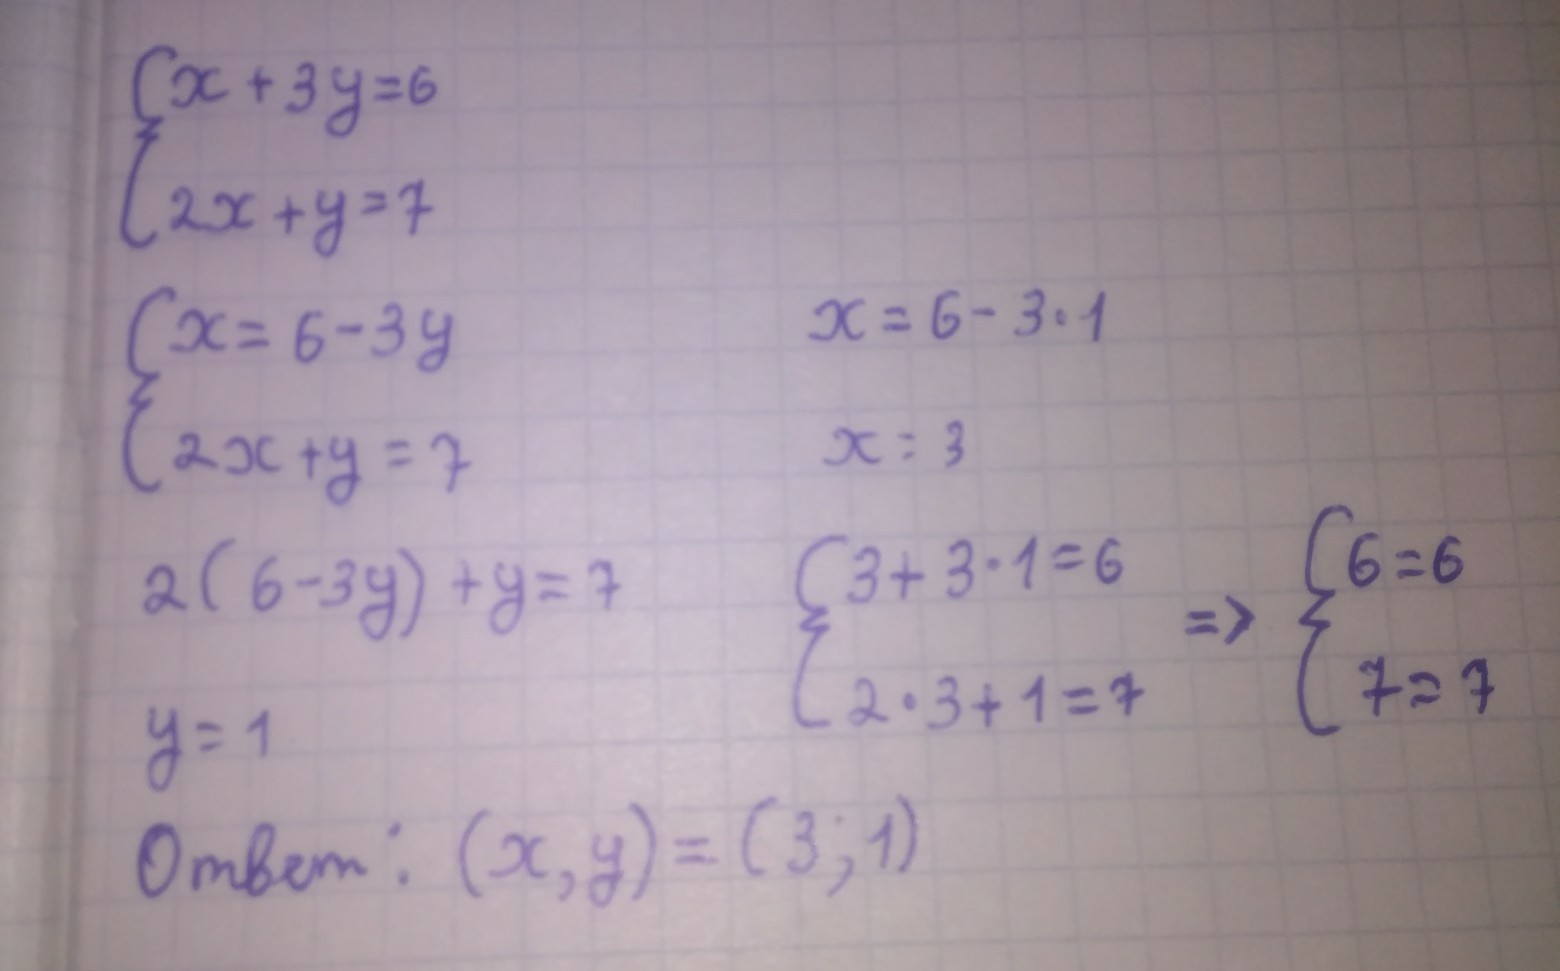 {x + 3y = 6
{2x + y = 7
{x = 6 - 3y
{2x + y = 7
2(6 - 3y) + y = 7
y = 1
x = 6 - 3·1
x = 3
{3 + 3·1 = 6 => {6 = 6
{2·3 + 1 = 7 {7 = 7
Ответ: (x, y) = (3; 1)